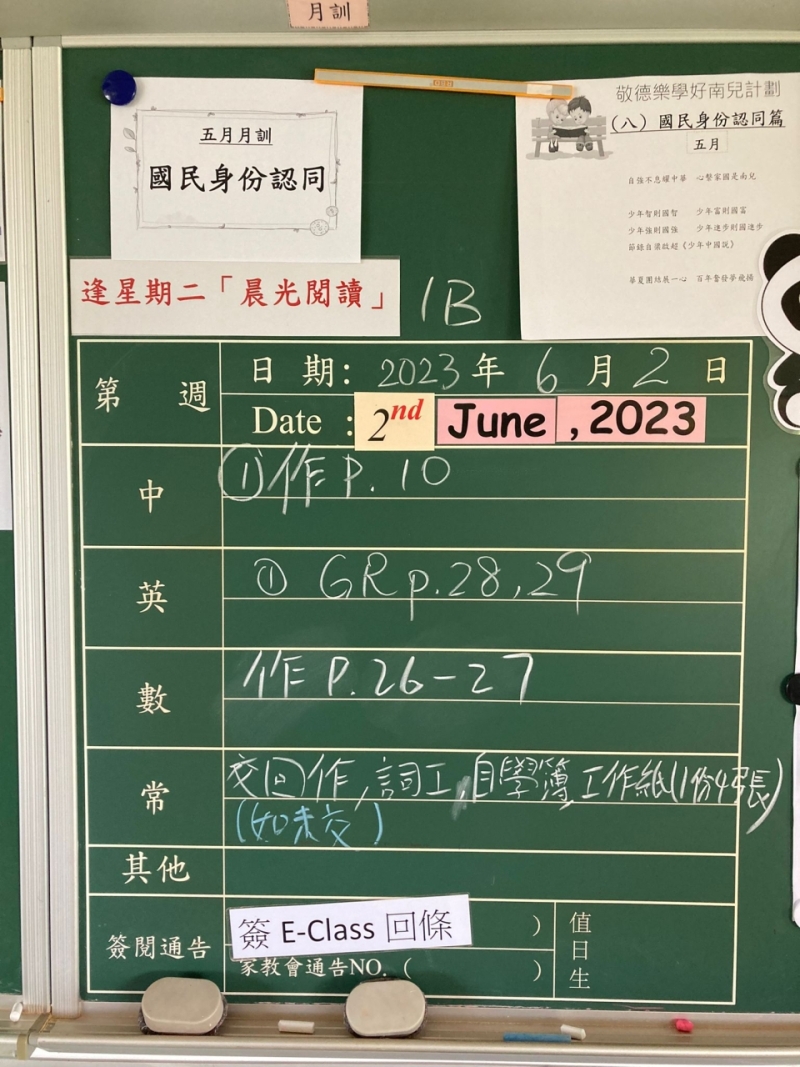 月訓
五月月訓
國民身份認同
敬德樂學好南兒計劃
(八)國民身份認同篇
五月
自強不息耀中華 心繫家國是南兒
少年智則國智 少年富則國富
少年強則國強 少年進步則國進步
節錄自梁啟超《少年中國說》
華夏團結展一心 百年奮發夢飛揚
逢星期二「晨光閱讀」
1B
第 週
日 期: 2023 年 6 月 2 日
Date : 2nd June , 2023
中
① 作 P. 10
英
① GR p. 28, 29
數
作 P. 26-27
常
交回作, 詞工, 自學簿, 工作紙(1份4張)
(如未交)
其他
簽閱通告
簽 E-Class 回條 )
家教會通告NO. ( )
值日生